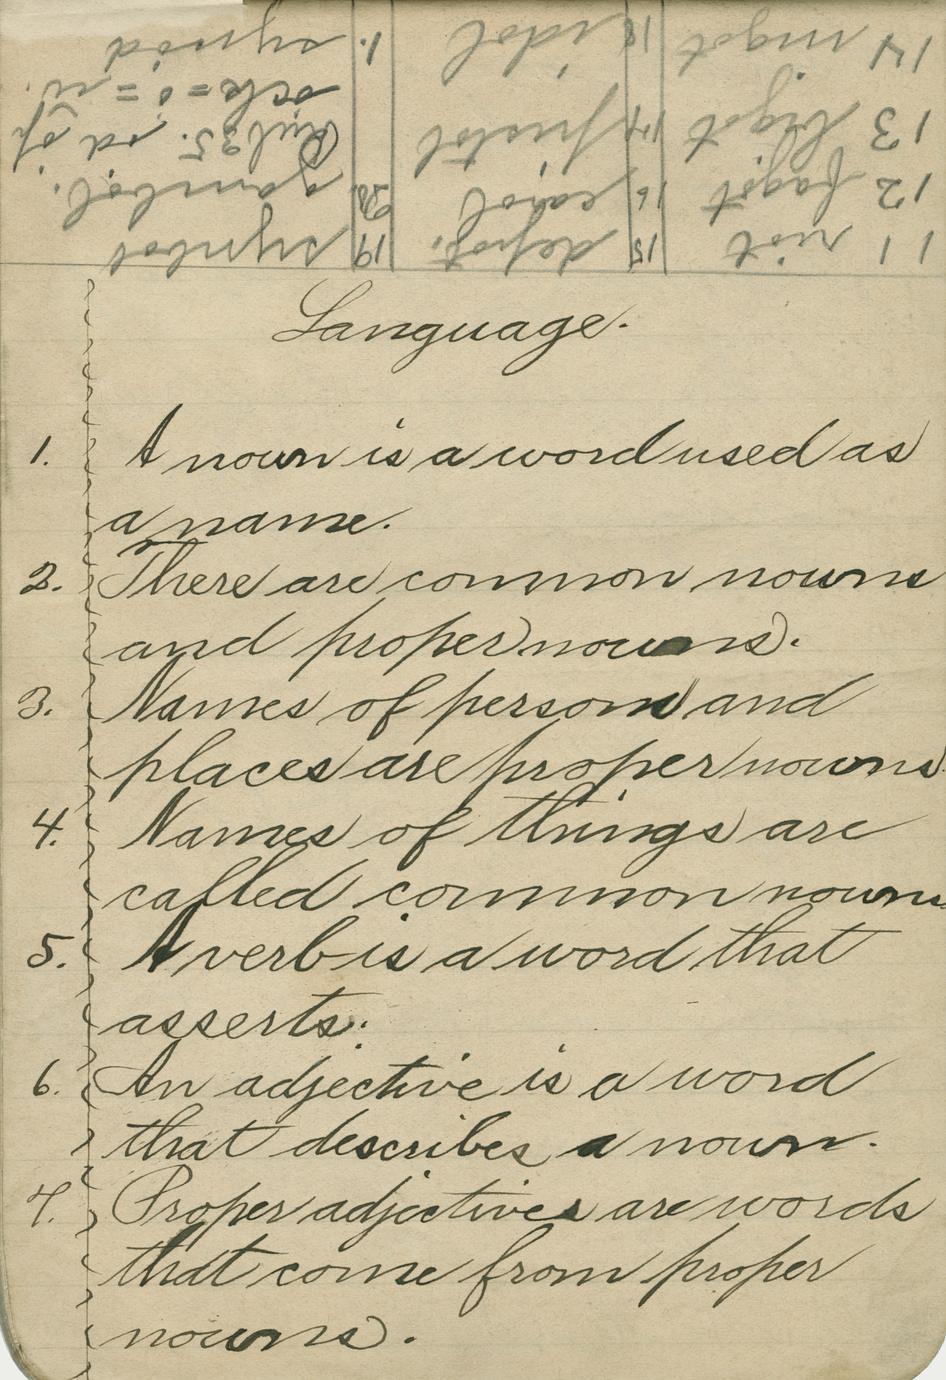 Language.
1. A noun is a word used as
a name.
2. There are common nouns
and proper nouns.
3. Names of persons and
places are proper nouns
4. Names of things are
called common nouns
5. A verb is a word that
asserts.
6. An adjective is a word
that describes a noun.
7. Proper adjectives are words
that come from proper
nouns.
11 riot 15 depot. 19 symbol
12 fagot 16 carol 20. gambol.
13 bigot 17 pistol 35.
14 ingot 18 idol 1. synod